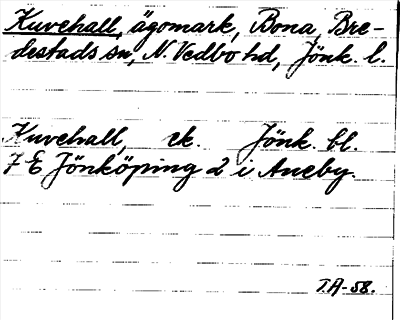 Kuvehall, ägomark, Bona, Bre-
destads sn, N. Vedbo hd, Jönk. l.
Kuvehall, ek. Jönk. bl.
7 E Jönköping 2 i Aneby.
T.A-58.